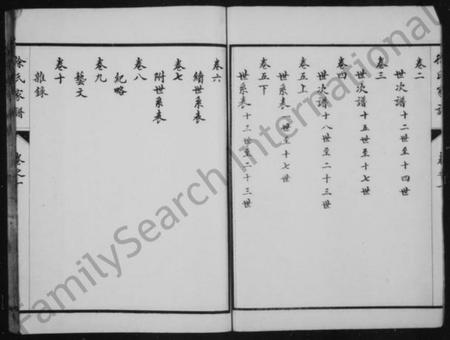 徐氏家譜
卷二
世次譜十二世至十四世
卷三
世次譜十五世至十七世
卷四
世次譜十八世至二十三世
卷五上
世系表一世至十七世
卷五下
世系表十三世至二十三世
卷六
續世系表
卷七
附世系表
卷八
紀略
卷九
藝文
卷十
雜錄
徐氏家譜
卷之一
FamilySearch International